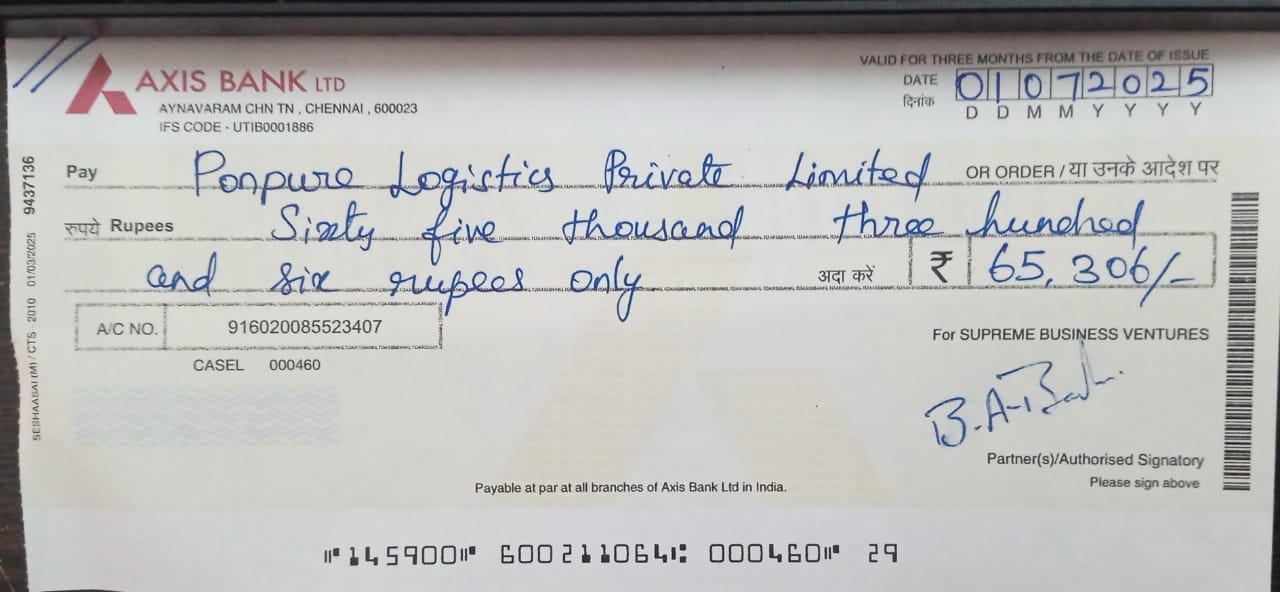 AXIS BANK LTD
AYNAVARAM CHN TN , CHENNAI , 600023
IFS CODE - UTIB0001886
VALID FOR THREE MONTHS FROM THE DATE OF ISSUE
DATE 01072025
दिनांक D D M M Y Y Y Y
Pay Ponpure Logistics Private Limited OR ORDER / या उनके आदेश पर
रुपये Rupees Sixty five thousand three hundred
and six rupees only अदा करें ₹ 65,306/-
A/C NO. 916020085523407
CASEL 000460
For SUPREME BUSINESS VENTURES
Partner(s)/Authorised Signatory
Please sign above
Payable at par at all branches of Axis Bank Ltd in India.
⑈145900⑈ 600211064⑆ 000460⑈ 29
SESHAASAI (M) / CTS - 2010 01/03/2025 9437136